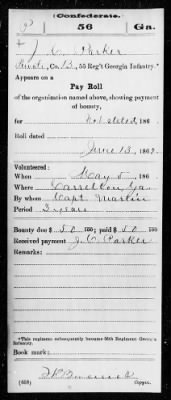 (Confederate.)
P 56 Ga.
J. C. Parker
Private, Co. B, 55 Reg't Georgia Infantry.*
Appears on a
Pay Roll
of the organization named above, showing payment
of bounty,
for Not stated, 186 .
Roll dated
June 13, 1862.
Volunteered:
When May 5, 186 .
Where Carrollton, Ga.
By whom Capt. Martin
Period 3 years
Bounty due $ 50 100; paid $ 50 100
Received payment J. C. Parker
Remarks:
*This regiment subsequently became 56th Regiment Georgia
Infantry.
Book mark:
(639) Copyist.